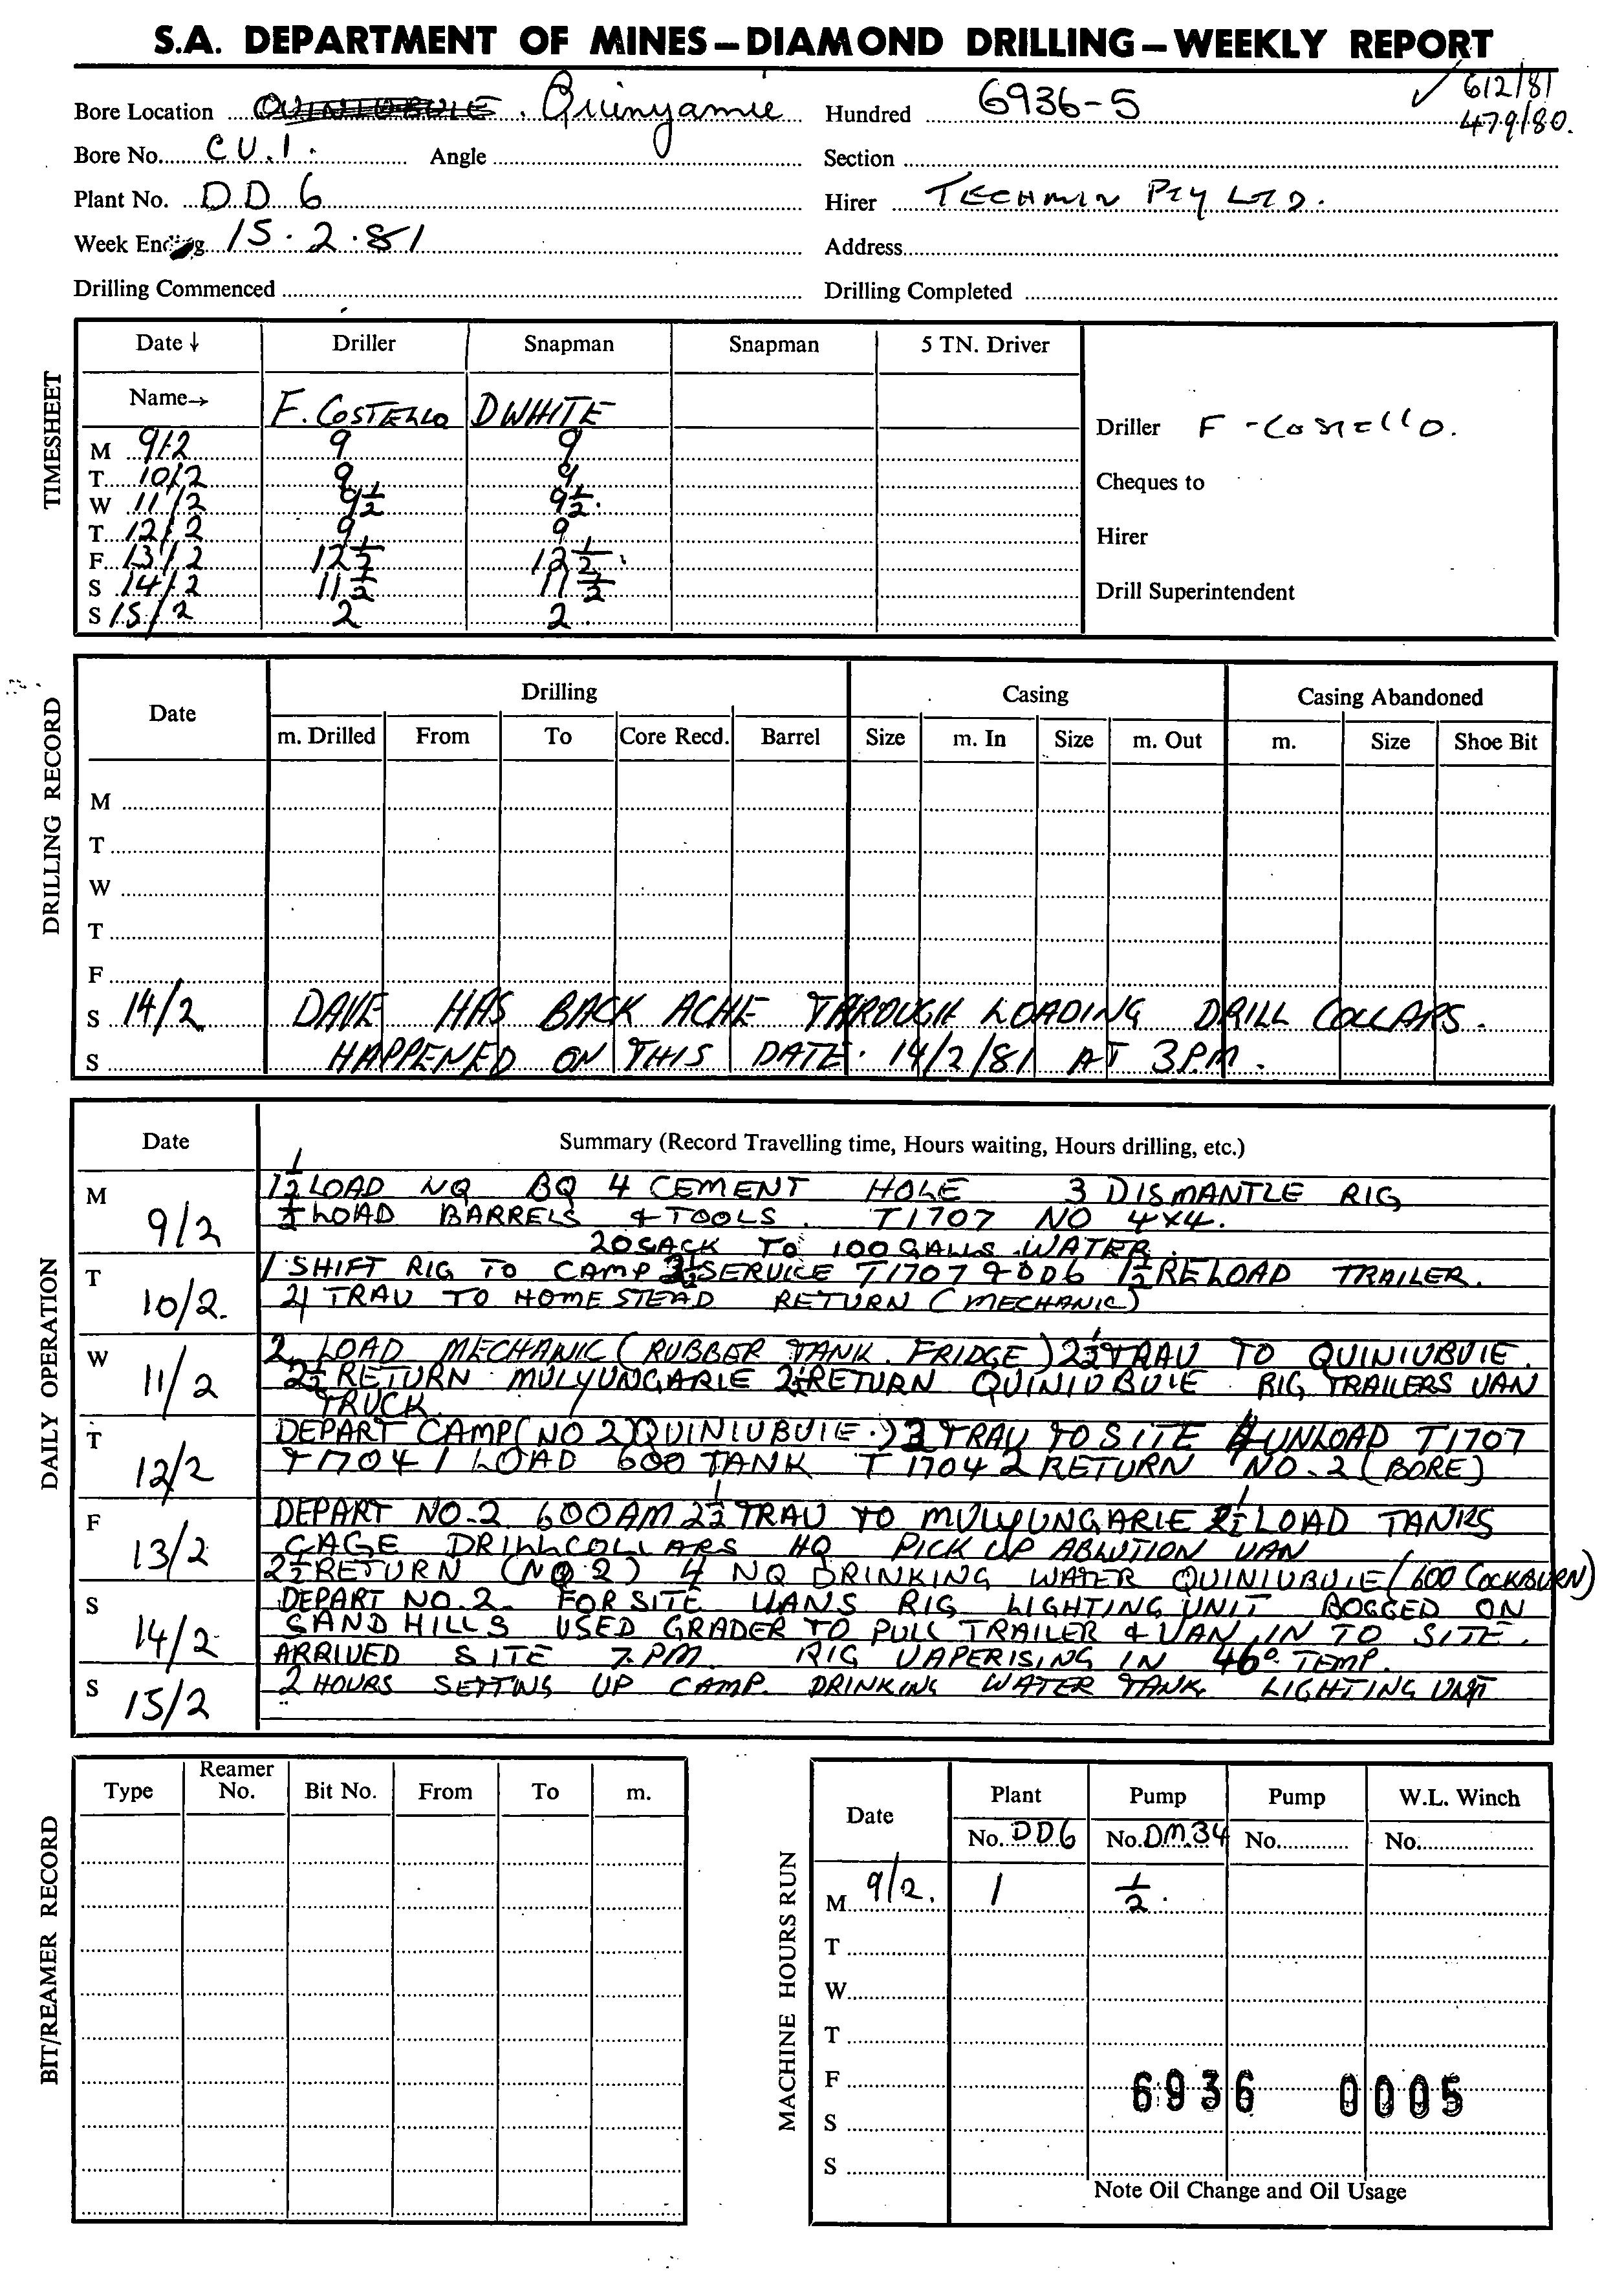 S.A. DEPARTMENT OF MINES – DIAMOND DRILLING – WEEKLY REPORT
612/81
479/80.
Bore Location QUINIOBUIE . Quinyamie Hundred 6936-5
Bore No. C U . 1 . Angle Section
Plant No. D D 6 Hirer TECHMIN PTY LTD.
Week Ending 15 . 2 . 81 Address
Drilling Commenced Drilling Completed
TIMESHEET
Date ↓ Driller Snapman Snapman 5 TN. Driver
Name→ F. COSTELLO D WHITE
M 9/2 9 9
T 10/2 9 9
W 11/2 9½ 9½.
T 12/2 9 9
F 13/2 12½ 12½
S 14/2 11½ 11½
S 15/2 2 2.
Driller F - COSTELLO.
Cheques to
Hirer
Drill Superintendent
DRILLING RECORD
Date Drilling Casing Casing Abandoned
m. Drilled From To Core Recd. Barrel Size m. In Size m. Out m. Size Shoe Bit
M
T
W
T
F
S 14/2 DAVE HAS BACK ACHE THROUGH LOADING DRILL COLLARS.
S HAPPENED ON THIS DATE. 14/2/81 AT 3 P.M.
DAILY OPERATION
Date Summary (Record Travelling time, Hours waiting, Hours drilling, etc.)
M 9/2 1½ LOAD NQ BQ 4 CEMENT HOLE 3 DISMANTLE RIG
½ LOAD BARRELS & TOOLS. T1707 NO 4X4.
20 SACK TO 100 GALLS WATER.
T 10/2. 1 SHIFT RIG TO CAMP 2½ SERVICE T1707 & DD6 1½ RELOAD TRAILER.
4 TRAV TO HOMESTEAD RETURN (MECHANIC)
W 11/2 2 LOAD MECHANIC (RUBBER TANK. FRIDGE) 2½ TRAV TO QUINIUBUIE.
2½ RETURN MULYUNGARIE 2½ RETURN QUINIUBUIE RIG TRAILERS VAN
TRUCK.
T 12/2 DEPART CAMP (NO 2) QUINIUBUIE.) 2 TRAV TO SITE 4 UNLOAD T1707
& T1704 1 LOAD 600 TANK T 1704 2 RETURN NO.2 (BORE)
F 13/2 DEPART NO.2 600 AM 2½ TRAV TO MULYUNGARIE 2½ LOAD TANKS
CAGE DRILLCOLLARS HQ PICK UP ABLUTION VAN
2½ RETURN (NO 2) 4 NQ DRINKING WATER QUINIUBUIE (600 COCKBURN)
S 14/2 DEPART NO.2. FOR SITE VANS RIG LIGHTING UNIT BOGGED ON
SAND HILLS USED GRADER TO PULL TRAILER & VAN IN TO SITE.
ARRIVED SITE 7 PM. RIG VAPERISING IN 46° TEMP.
S 15/2 2 HOURS SETTING UP CAMP. DRINKING WATER TANK LIGHTING UNIT
BIT/REAMER RECORD
Type Reamer No. Bit No. From To m.
MACHINE HOURS RUN
Date Plant Pump Pump W.L. Winch
No. DD6 No. DM.34 No. No.
M 9/2. 1 ½.
T
W
T
F
6936 0005
S
S
Note Oil Change and Oil Usage